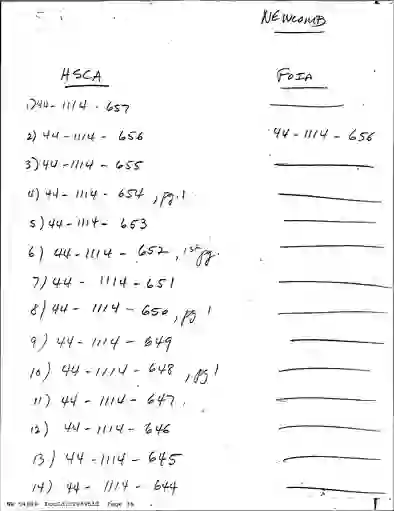 NEWCOMB
HSCA FOIA
1) 44-1114-657
2) 44-1114-656 44-1114-656
3) 44-1114-655
4) 44-1114-654, pg. 1
5) 44-1114-653
6) 44-1114-652, 1st pg.
7) 44-1114-651
8) 44-1114-650, pg 1
9) 44-1114-649
10) 44-1114-648, pg 1
11) 44-1114-647
12) 44-1114-646
13) 44-1114-645
14) 44-1114-644
Page 36